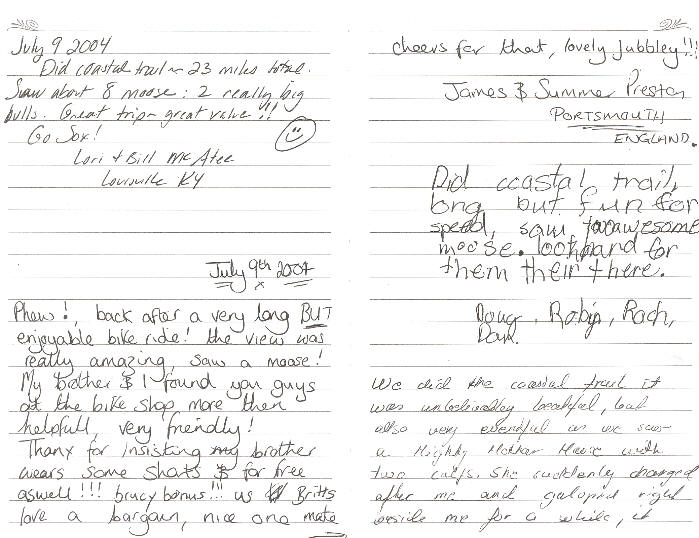 July 9 2004
Did coastal trail ~ 23 miles total.
Saw about 8 moose: 2 really big
bulls. Great trip~ great value!!
Go Sox!
Lori + Bill McAtee
Louisville KY
July 9th 2004
Phew!, back after a very long BUT
enjoyable bike ride! the view was
really amazing, saw a moose!
My brother & I found you guys
at the bike shop more then
helpfull, very friendly!
Thanx for insisting my brother
wears some shats for free
aswell!!! brucy bonus!!! us Britts
love a bargain, nice one mate
cheers for that, lovely Jubbley!!!
James & Summer Preston
PORTSMOUTH
ENGLAND.
Did coastal trail,
long but fun for
speed, saw awesome
moose. look hard for
them their there.
Doug, Robin, Rach,
Dan.
We did the coastal trail it
was unbelievably beautiful, but
also very eventful as we saw
a Mighty Mother Moose with
two calfs. She suddenly charged
after me and galoped right
beside me for a while, it